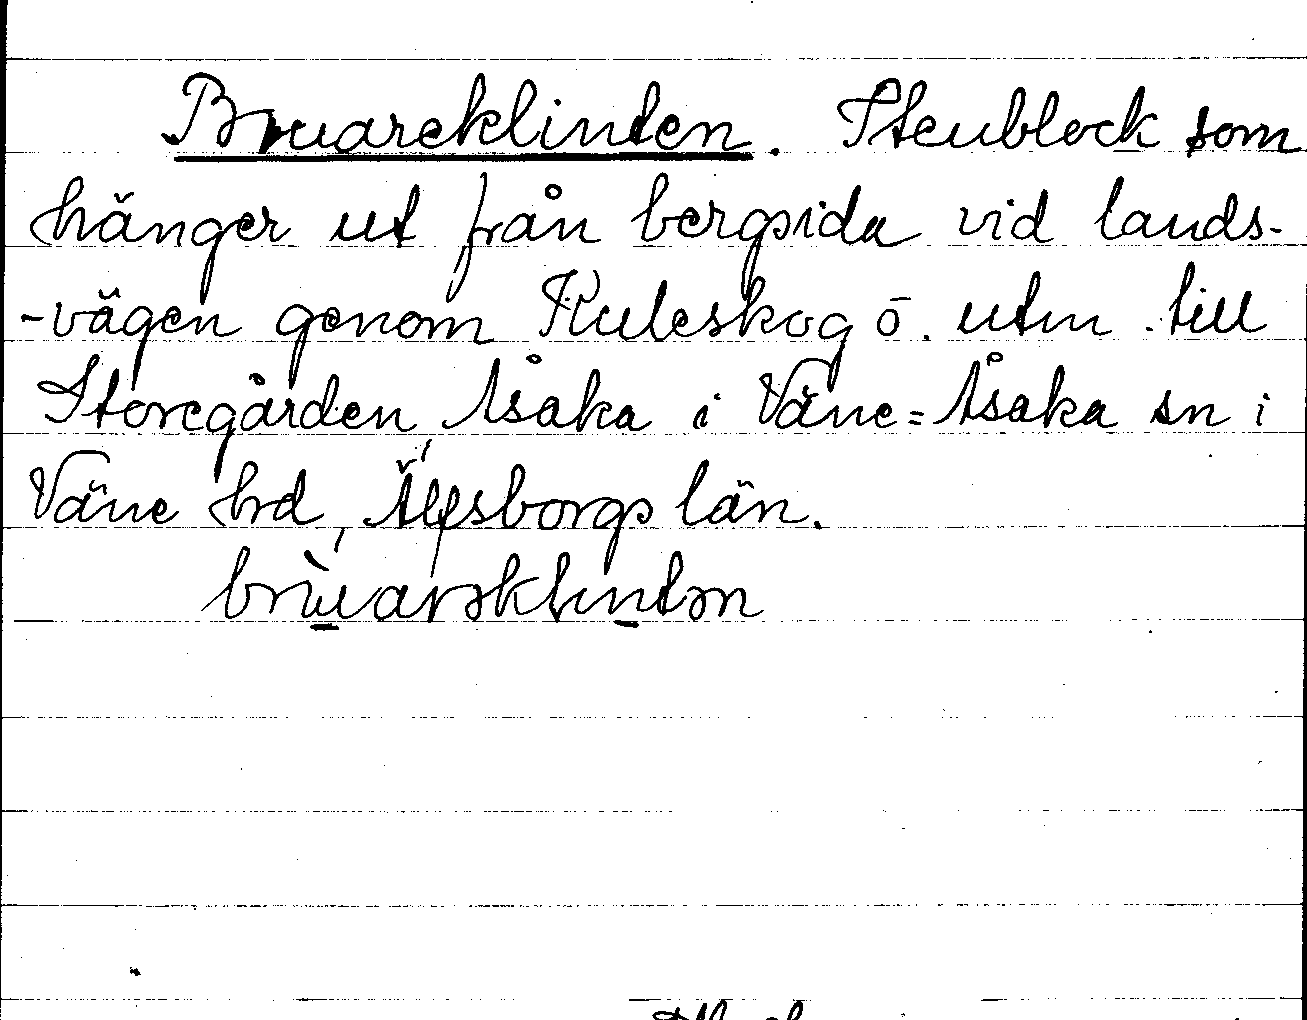 Bruareklinten. Stenblock som
hänger ut från bergsida vid lands-
-vägen genom Kuleskog ö. utm. till
Storegården, Åsaka i Väne=Åsaka sn i
Väne hrd, Älfsborgs län.
brùarəklintən